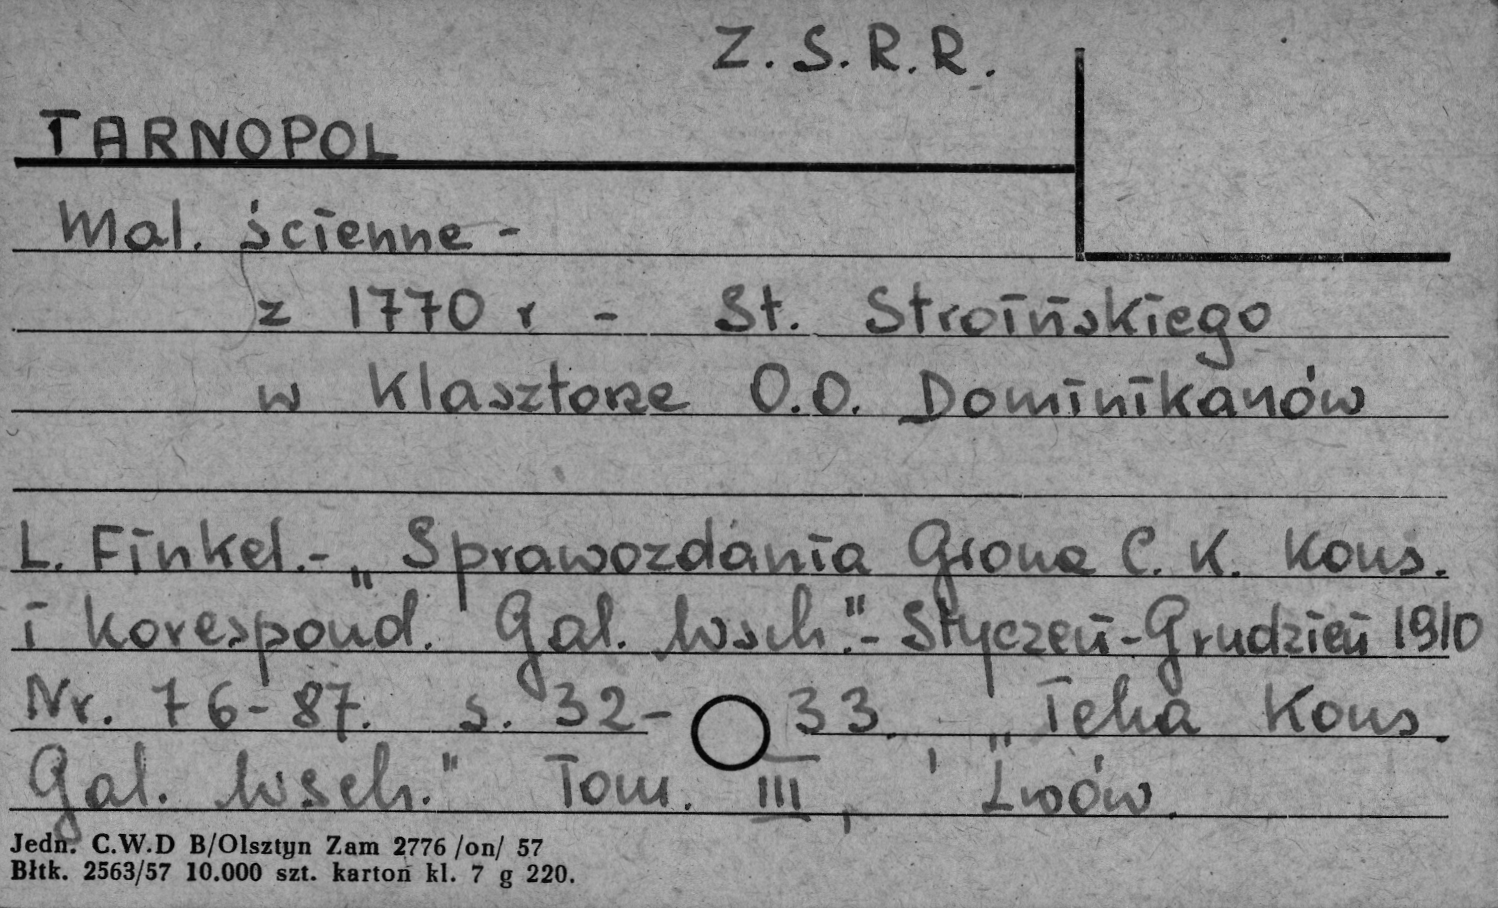 Z.S.R.R.
TARNOPOL
Mal. ścienne -
z 1770 r - St. Stroińskiego
w Klasztorze O.O. Dominikanów
L. Finkel.- „Sprawozdania Grona C. K. Kons.
i korespond. Gal. Wsch."- Styczeń-Grudzień 1910
Nr. 76-87. s. 32-33. „Teka Kons.
Gal. Wsch." Tom. III, Lwów.
Jedn. C.W.D B/Olsztyn Zam 2776 /on/ 57
Błtk. 2563/57 10.000 szt. karton kl. 7 g 220.